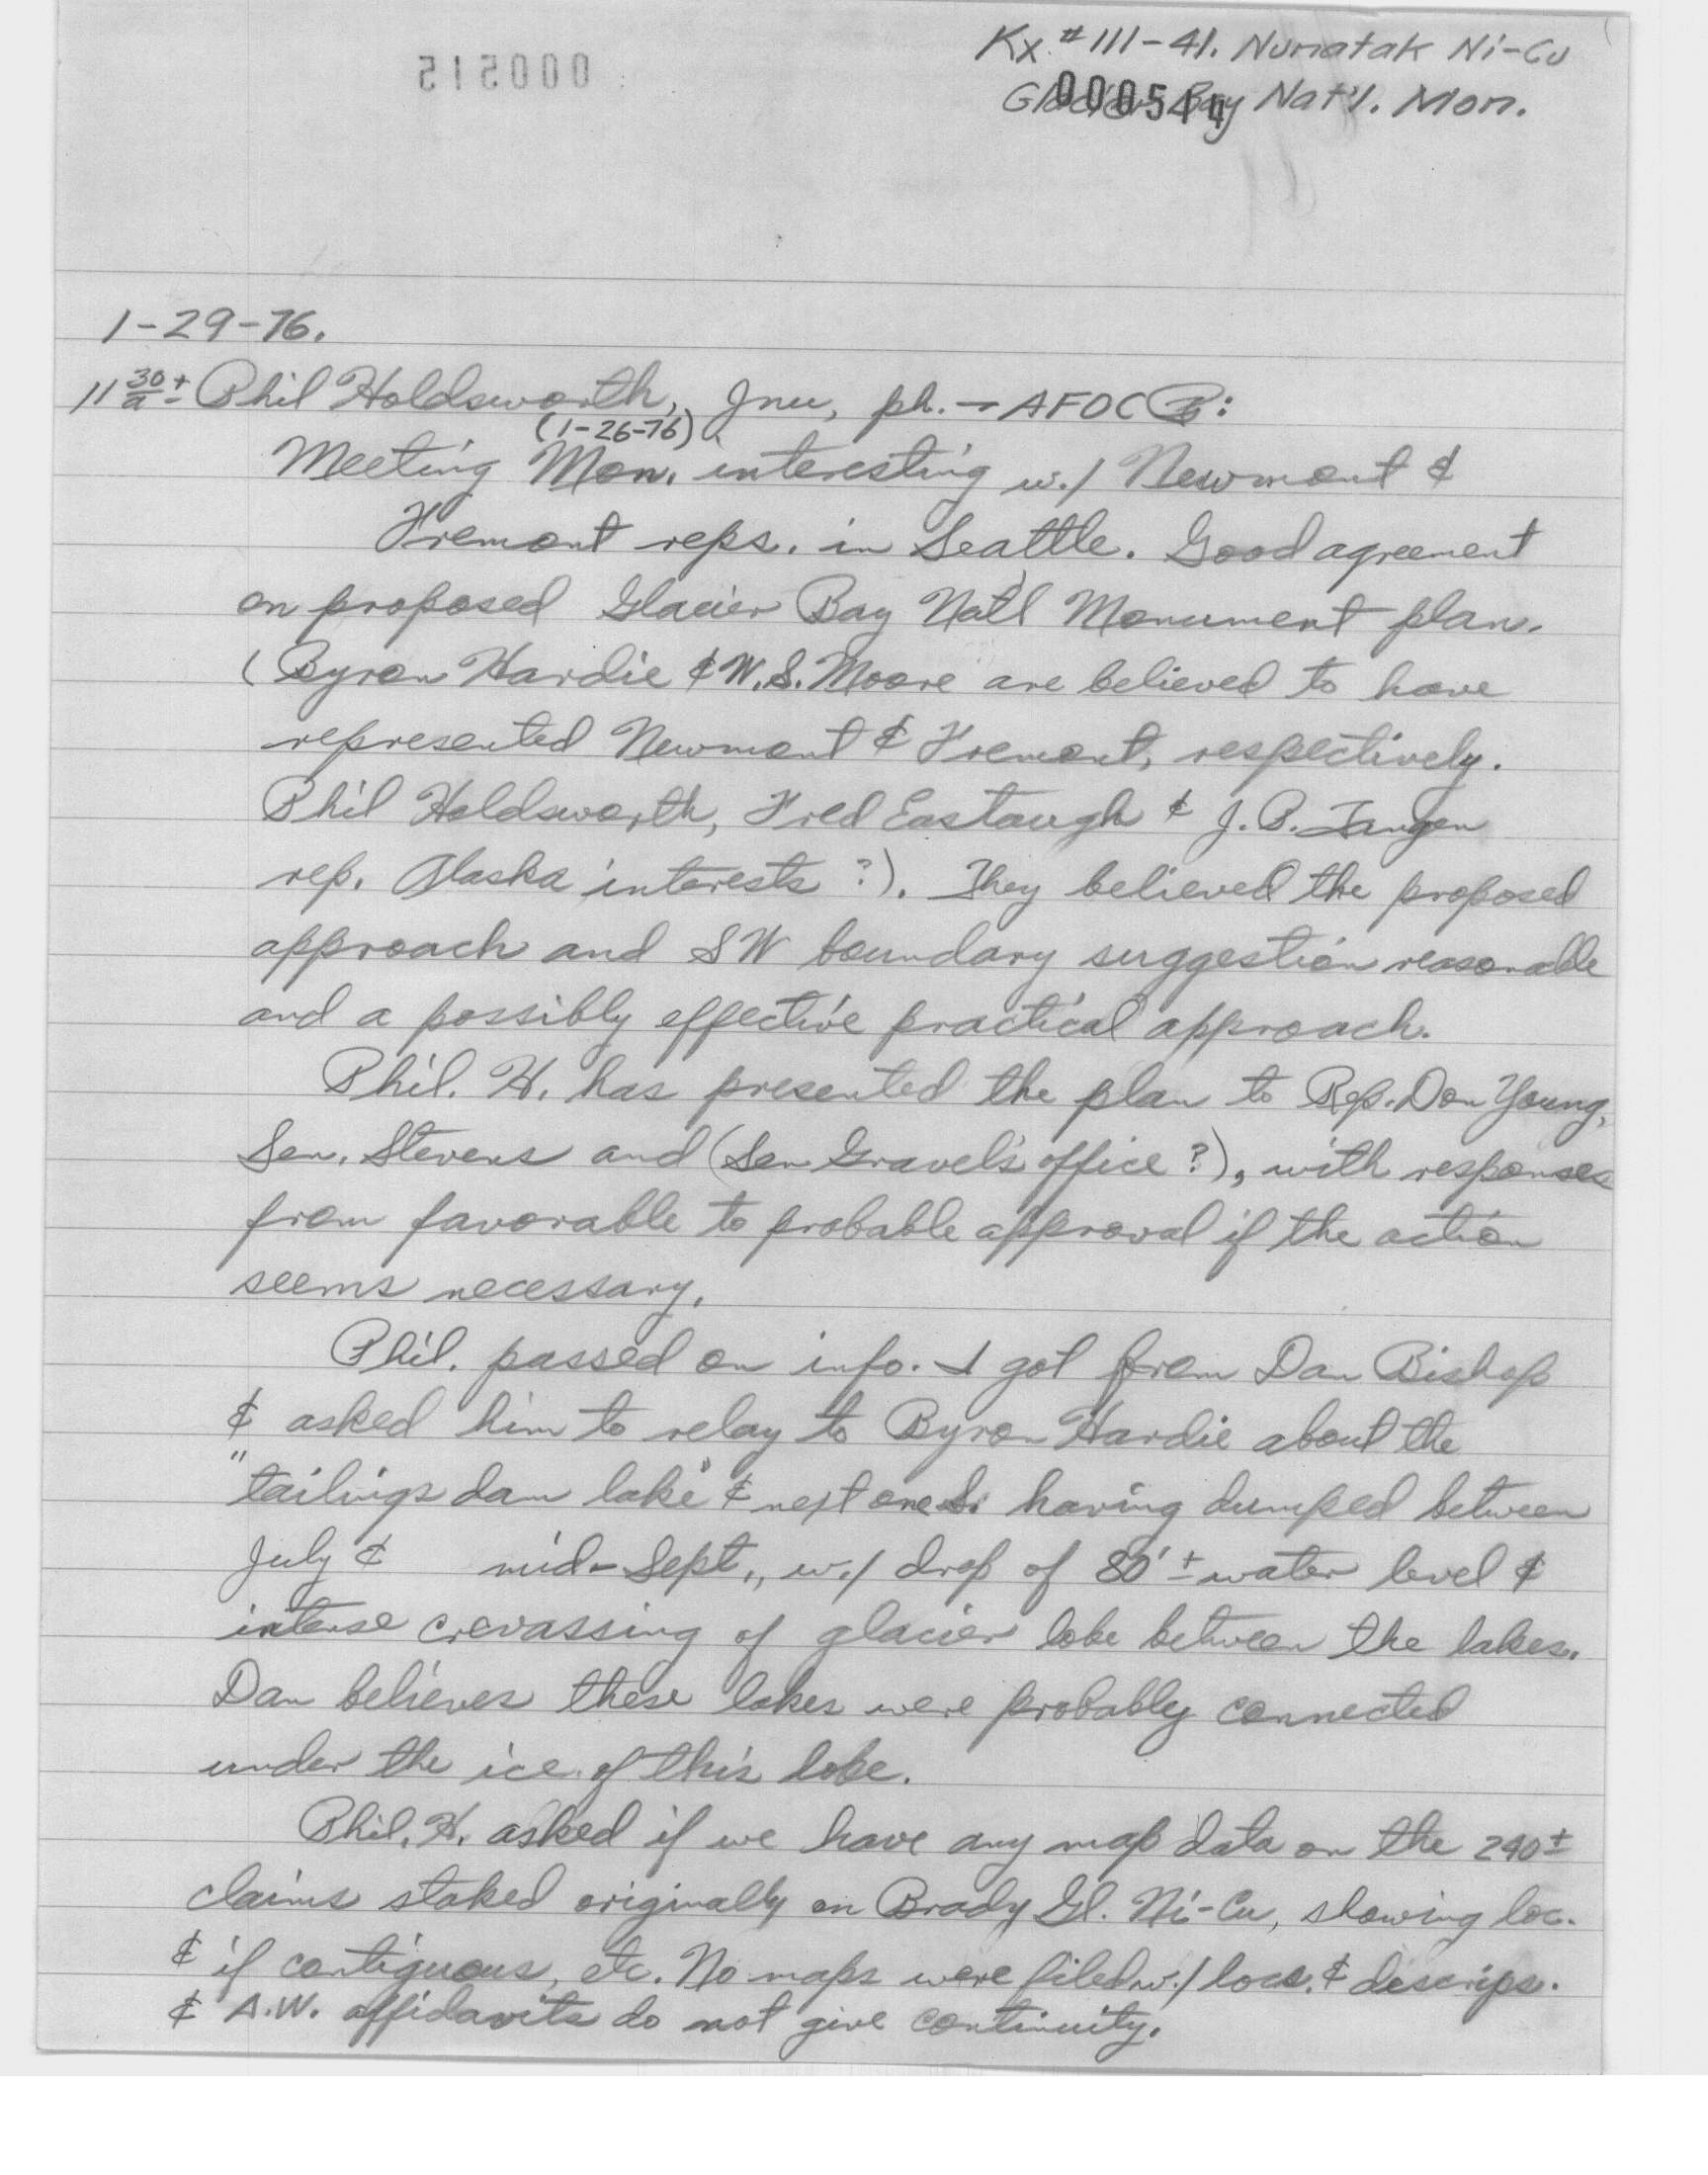 Kx #111-41. Nunatak Ni-Cu
000515
Glacier Bay Nat'l. Mon.
000514
1-29-76.
11 30/a ± Phil Holdsworth, Jnu, ph. → AFOC:
(1-26-76)
Meeting Mon. interesting w./ Newmont &
Fremont reps. in Seattle. Good agreement
on proposed Glacier Bay Nat'l Monument plan.
(Byron Hardie & W.S. Moore are believed to have
represented Newmont & Fremont, respectively.
Phil Holdsworth, Fred Eastaugh & J.P. Tangen
rep. Alaska interests?). They believed the proposed
approach and SW boundary suggestion reasonable
and a possibly effective practical approach.
Phil. H. has presented the plan to Rep. Don Young,
Sen. Stevens and (Sen Gravel's office?), with responses
from favorable to probable approval if the action
seems necessary.
Phil. passed on info. I got from Dan Bishop
& asked him to relay to Byron Hardie about the
"tailings dam lake" & next one S. having dumped between
July & mid-Sept., w./ drop of 80' ± water level &
intense crevassing of glacier lobe between the lakes.
Dan believes these lakes were probably connected
under the ice of this lobe.
Phil. H. asked if we have any map data on the 240±
claims staked originally on Brady Gl. Ni-Cu, showing loc.
& if contiguous, etc. No maps were filed w./ locs. & descrips.
& A.W. affidavits do not give continuity.